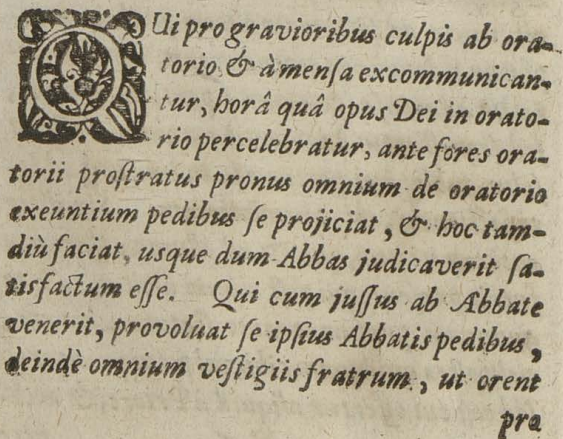 QUi pro gravioribus culpis ab ora-
torio & à mensa excommunican-
tur, horâ quâ opus Dei in orato-
rio percelebratur, ante fores ora-
torii prostratus pronus omnium de oratorio
exeuntium pedibus se projiciat, & hoc tam-
diù faciat, usque dum Abbas judicaverit sa-
tisfactum esse. Qui cum jussus ab Abbate
venerit, provoluat se ipsius Abbatis pedibus,
deindè omnium vestigiis fratrum, ut orent
pro